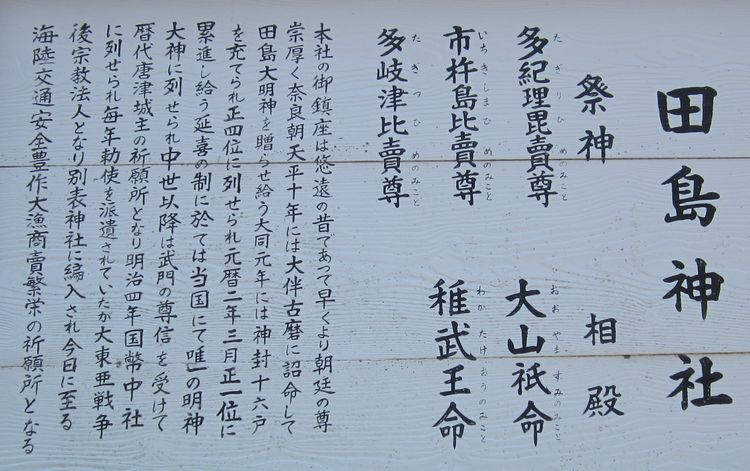 田島神社
祭神
相殿
多紀理毘賣尊
たぎりひめのみこと
大山祇命
おおやますみのみこと
市杵島比賣尊
いちきしまひめのみこと
稚武王命
わかたけおうのみこと
多岐津比賣尊
たぎつひめのみこと
本社の御鎮座は悠遠の昔であって早くより朝廷の尊
崇厚く奈良朝天平十年には大伴古麿に詔命して
田島大明神を贈らせ給う大同元年には神封十六戸
を充てられ正四位に列せられ元暦二年三月正一位に
累進し給う延喜の制に於ては当国にて唯一の明神
大神に列せられ中世以降は武門の尊信を受けて
歴代唐津城主の祈願所となり明治四年国幣中社
に列せられ毎年勅使を派遣されていたか大東亜戦争
後宗教法人となり別表神社に編入され今日に至る
海陸交通安全豊作大漁商賣繁栄の祈願所となる